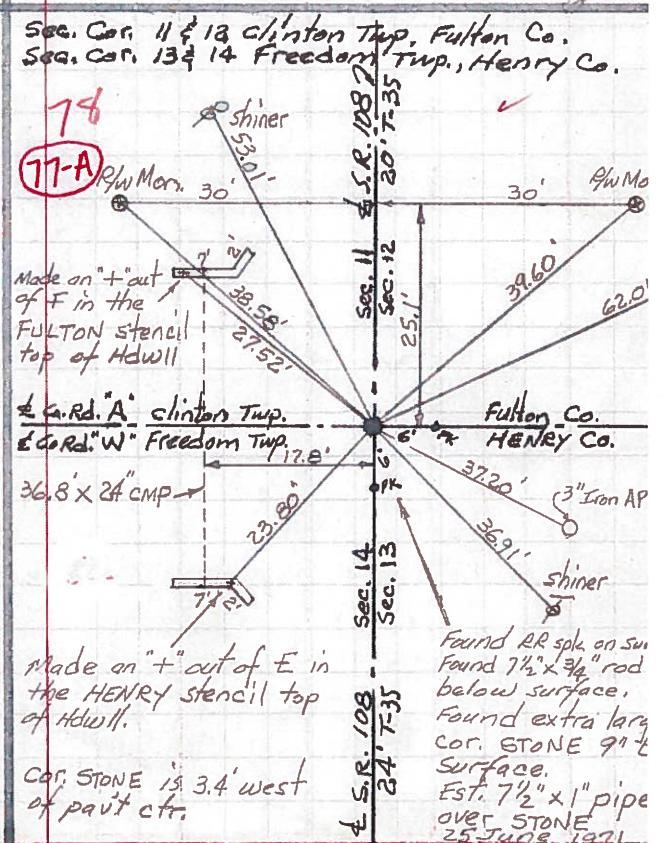 Sec. Cor. 11 & 12 Clinton Twp, Fulton Co.
Sec. Cor. 13 & 14 Freedom Twp., Henry Co.
78
77-A
shiner
53.01'
℄ S.R. 108
20' T-35
R/W Mon.
30'
30'
R/W Mo
7'
2'
Made an "+" out
of F in the
FULTON stencil
top of Hdwll
38.58'
27.52'
Sec. 11
Sec. 12
25.1'
39.60'
62.0'
℄ Co. Rd. "A" Clinton Twp.
Fulton Co.
℄ Co Rd. "W" Freedom Twp.
HENRY Co.
6'
PK
17.8'
6'
PK
36.8' X 24" CMP
23.80'
37.20'
3" Iron AP
36.91'
shiner
7'
2'
Sec. 14
Sec. 13
Made an "+" out of E in
the HENRY stencil top
of Hdwll.
Cor. STONE is 3.4' west
of pav't ctr.
℄ S.R. 108
24' T-35
Found RR spk on su
Found 7½" x ¾" rod
below surface.
Found extra larg
cor. STONE 9"
Surface.
Est. 7½" x 1" pipe
over STONE
25 June 1971